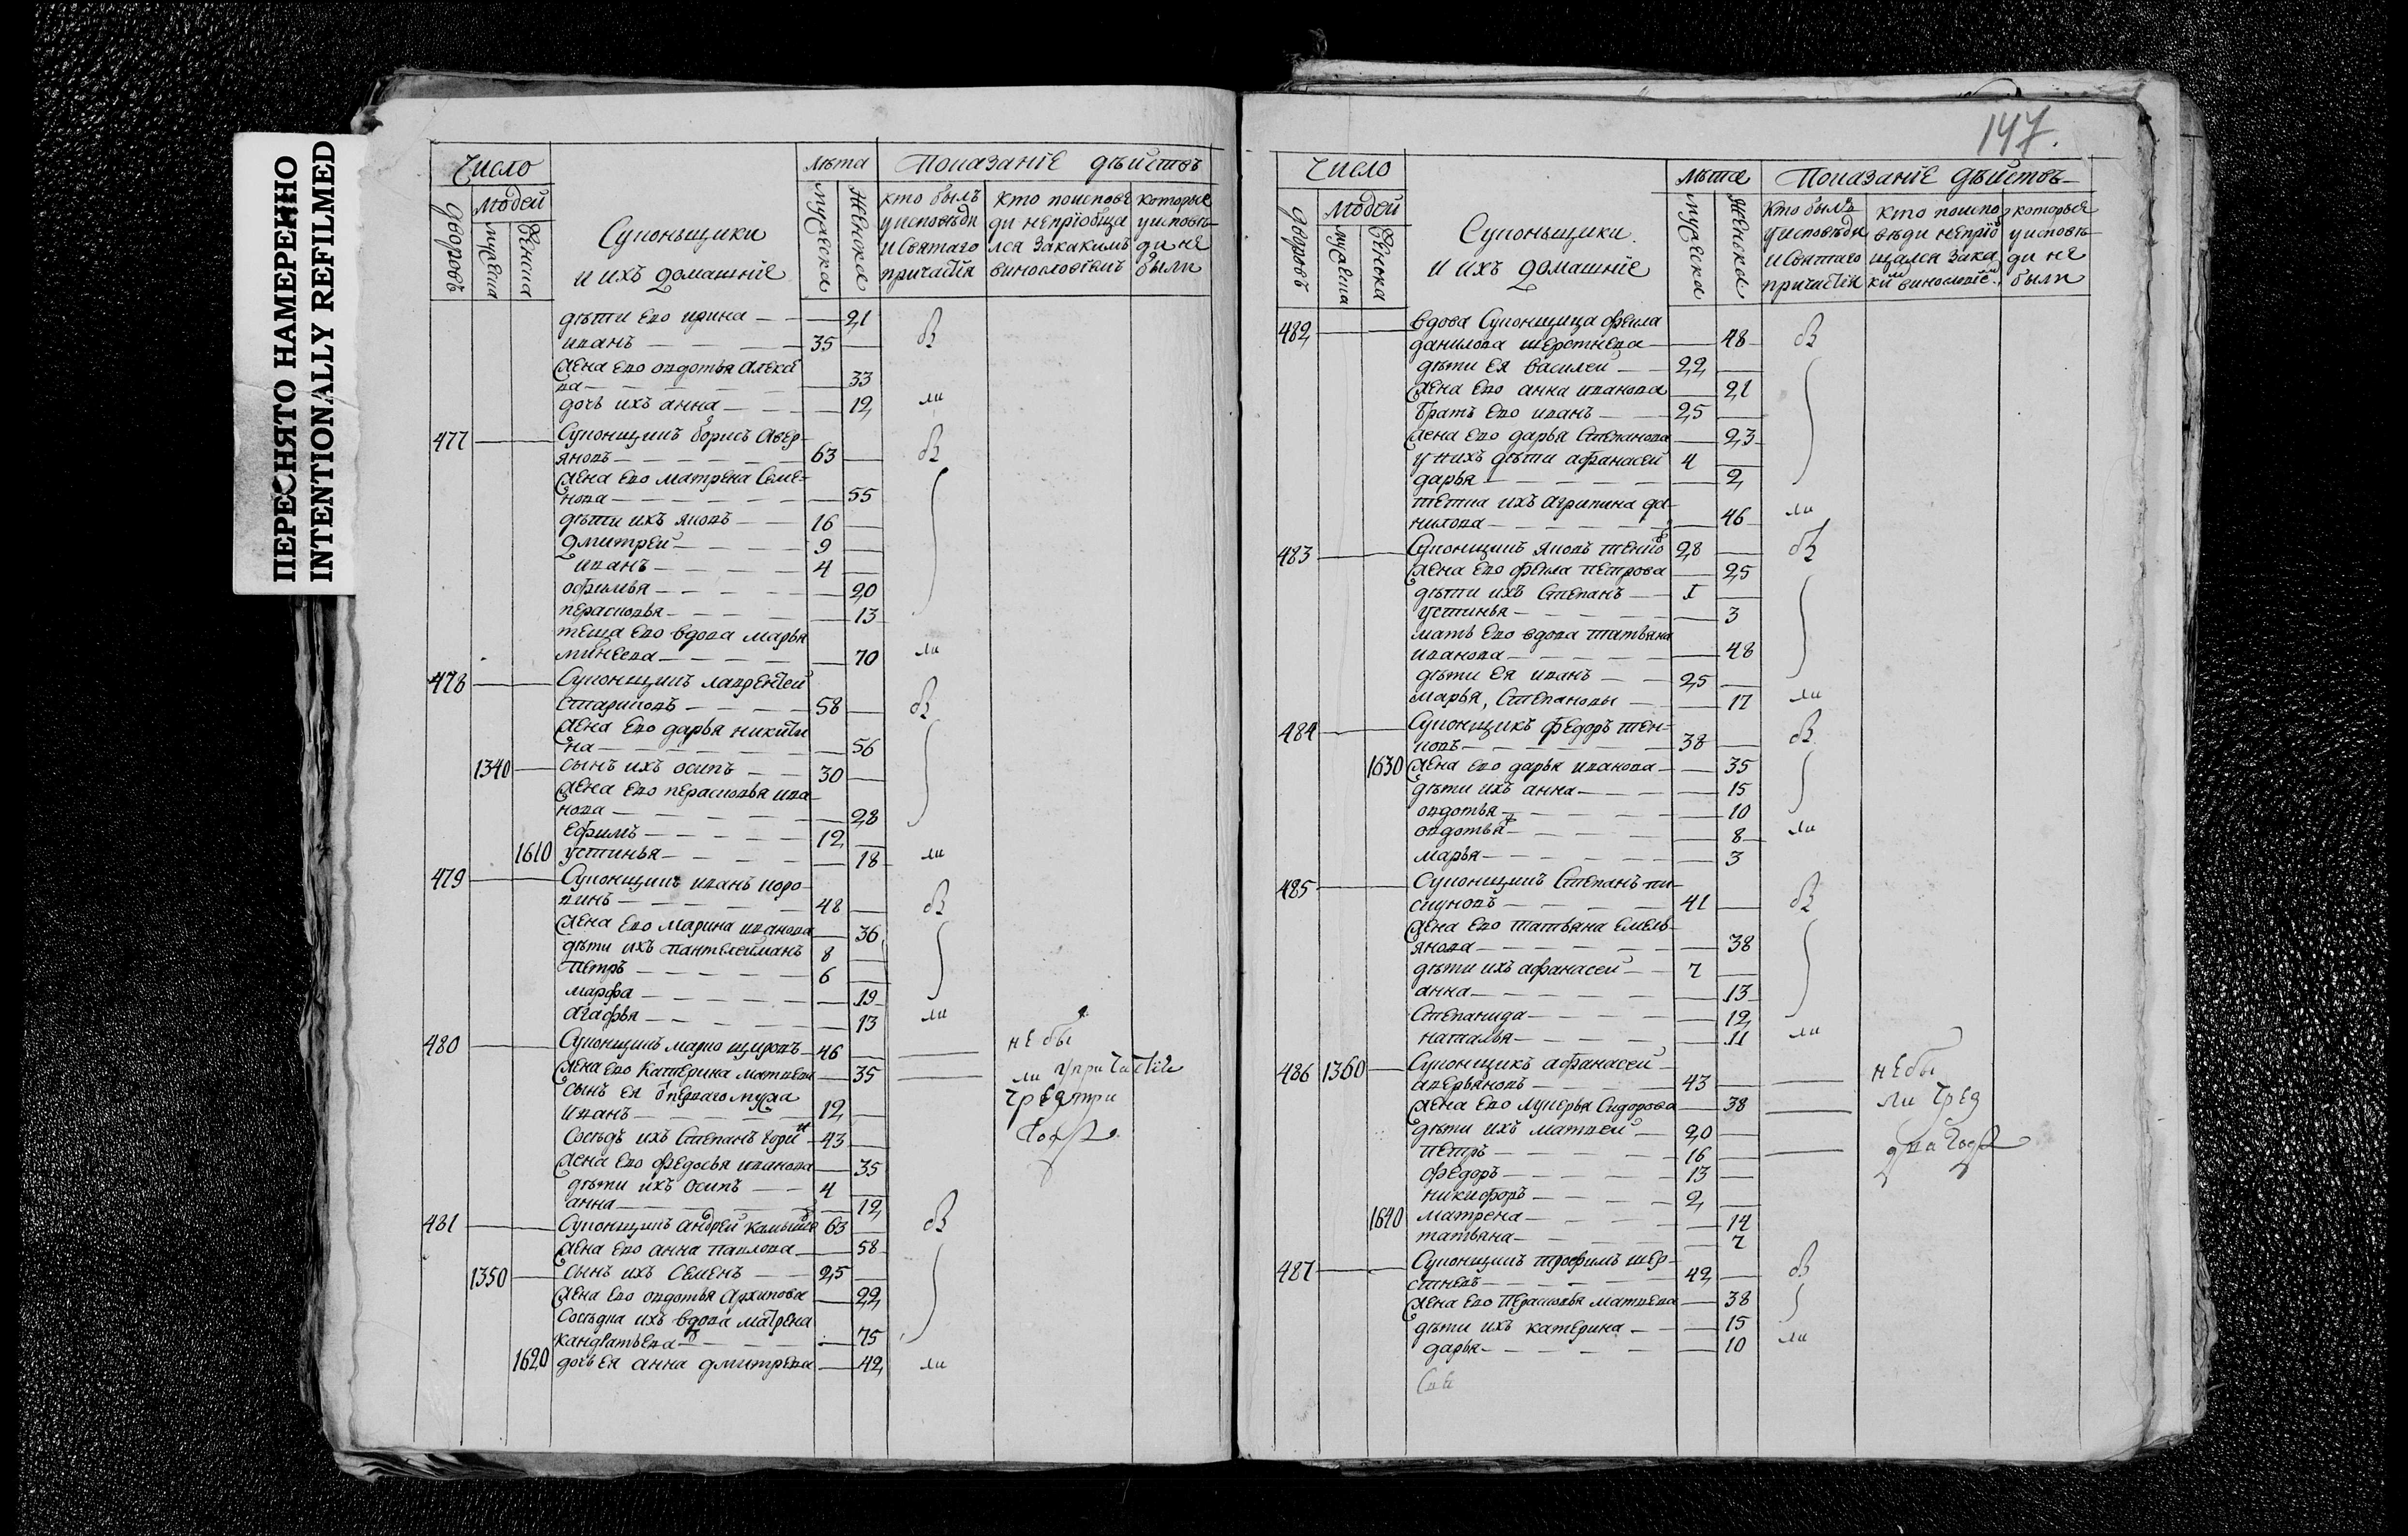 ПЕРЕСНЯТО НАМЕРЕННО
INTENTIONALLY REFILMED
Число
Людей
дворовъ
мужеска
женска
Супонъщики
и ихъ домашніе
лѣта
мужеска
женска
Показаніе дѣйствъ
кто былъ
у исповѣди
и Святаго
причастія
кто по исповѣ
ди не пріобща
лся за какимъ
винословіемъ
которые
у исповѣ
ди не
были
дѣти его ирина 21
иванъ 35
бы
жена его овдотья алексе
ва 33
дочь ихъ анна 12 ли
477 Супонщикъ борисъ авер-
яновъ 63 бы
жена его матрена Семе-
нова 55
дѣти ихъ яковъ 16
Дмитрей 9
иванъ 4
офимья 20
парасковья 13
теща его вдова марья
минеева 70 ли
478 Супонщикъ лаврентей
Стариковъ 58 бы
жена его дарья никити
на 56
1340 сынъ ихъ осипъ 30
жена его парасковья ива
нова 28
Ефимъ 12
1610 устинья 18 ли
479 Супонщикъ иванъ коро
винъ 48 бы
жена его марина иванова 36
дѣти ихъ пантелеиманъ 8
Петръ 6
марфа 19
агафья 13 ли
480 Супонщикъ марко щировъ 46 не бы
жена его Катерина матвеева 35 ли у причастія
сынъ ея перваго мужа чрез три
иванъ 12
Соседъ ихъ Степанъ 43 года
жена его федосья иванова 35
дѣти ихъ Осипъ 4
анна 12
481 Супонщикъ андрей 63 бы
жена его анна павлова 58
1350 сынъ ихъ Семенъ 25
жена его овдотья Архипова 22
Соседка ихъ вдова матрена
кандратьева 75
1620 дочь ея анна дмитрева 42 ли
147.
Число
Людей
дворовъ
мужеска
женска
Супонъщики
и ихъ домашніе
лѣта
мужеска
женска
Показаніе дѣйствъ
Кто былъ
у исповѣди
и Святаго
причастія
кто по испо
вѣди не пріоб
щался за ка
ким винословіем
которыя
у исповѣ-
ди не
были
482 вдова Супонщица фекла
данилова шерстнева 48 бы
дѣти ея василей 22
жена его анна иванова 21
братъ его иванъ 25
жена его дарья Степанова 23
у нихъ дѣти афанасей 4
дарья 2
тетка ихъ агрипина да-
нилова 46 ли
483 Супонщикъ яковъ 28 бы
жена его фекла петрова 25
дѣти ихъ Степанъ 1
устинья 3
мать его вдова татьяна
иванова 48
дѣти ея иванъ 25
марья, Степановы 17 ли
484 Супонщикъ федоръ тен-
ковъ 38 бы
1630 жена его дарья иванова 35
дѣти ихъ анна 15
овдотья 10
овдотья 8 ли
марья 3
485 Супонщикъ Степанъ пи-
скуновъ 41 бы
жена его татьяна емель-
янова 38
дѣти ихъ афанасей 7
анна 13
Степанида 12
наталья 11 ли
486 1360 Супонщикъ афанасей
аверьяновъ 43 не бы
жена его лукерья Сидорова 38 ли чрез
дѣти ихъ матвей 20
Петръ 16 два года
федоръ 13
никифоръ 2
1640 матрена 14
татьяна 7
487 Супонщикъ трофимъ шер-
стневъ 42 бы
жена его парасковья матвеева 38
дѣти ихъ катерина 15
дарья 10 ли